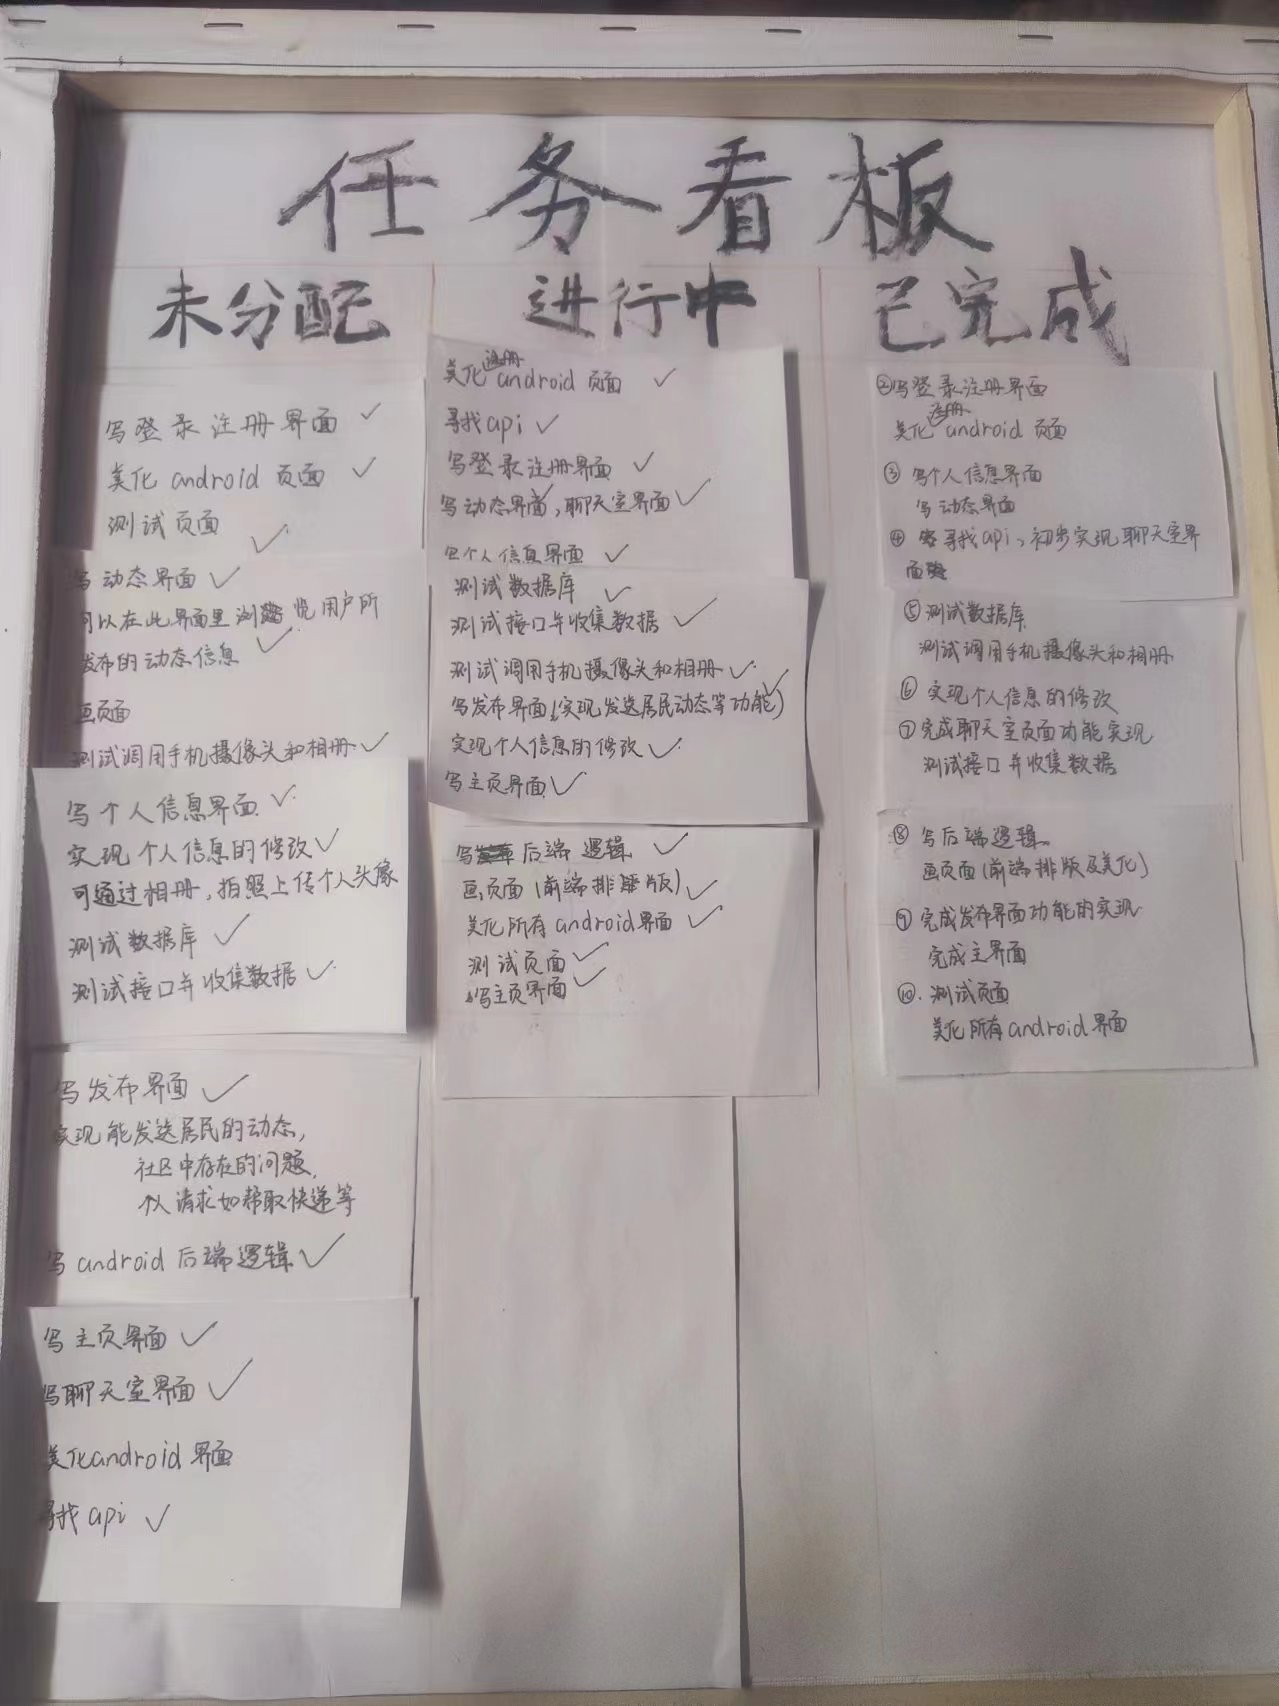 任务看板
未分配
写登录注册界面 ✓
美化 android 页面 ✓
测试页面 ✓
写动态界面 ✓
可以在此界面里浏览用户所
发布的动态信息 ✓
画页面
测试调用手机摄像头和相册 ✓
写个人信息界面 ✓
实现个人信息的修改 ✓
可通过相册,拍照上传个人头像
测试数据库 ✓
测试接口并收集数据 ✓
写发布界面 ✓
实现能发送居民的动态,
社区中存在的问题,
个人请求如帮取快递等
写 android 后端逻辑 ✓
写主页界面 ✓
写聊天室界面 ✓
美化android界面
寻找 api ✓
进行中
美化注册android 页面 ✓
寻找api ✓
写登录注册界面 ✓
写动态界面,聊天室界面 ✓
写个人信息界面 ✓
测试数据库 ✓
测试接口并收集数据 ✓
测试调用手机摄像头和相册 ✓
写发布界面(实现发送居民动态等功能) ✓
实现个人信息的修改 ✓
写主页界面 ✓
写后端逻辑 ✓
画页面(前端排版) ✓
美化所有android界面 ✓
测试页面 ✓
写主页界面 ✓
已完成
②写登录注册界面
美化注册android 页面
③ 写个人信息界面
写动态界面
④ 寻找api、初步实现聊天室界
面
⑤ 测试数据库
测试调用手机摄像头和相册
⑥ 实现个人信息的修改
⑦ 完成聊天室页面功能实现
测试接口并收集数据
⑧ 写后端逻辑
画页面(前端排版及美化)
⑨ 完成发布界面功能的实现
完成主界面
⑩. 测试页面
美化所有android界面